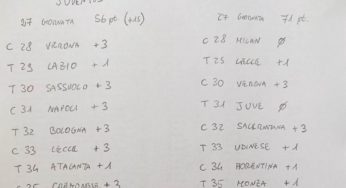 JUVENTUS
27 GIORNATA 56 pt (+15)
C 28 VERONA +3
T 29 LAZIO +1
T 30 SASSUOLO +3
C 31 NAPOLI +3
T 32 BOLOGNA +3
C 33 LECCE +3
T 34 ATALANTA +1
C 35 CREMONESE +3
27 GIORNATA 71 pt.
C 28 MILAN Ø
T 29 LECCE +1
C 30 VERONA +3
T 31 JUVE Ø
C 32 SALERNITANA +3
T 33 UDINESE +1
C 34 FIORENTINA +1
T 35 MONZA +1